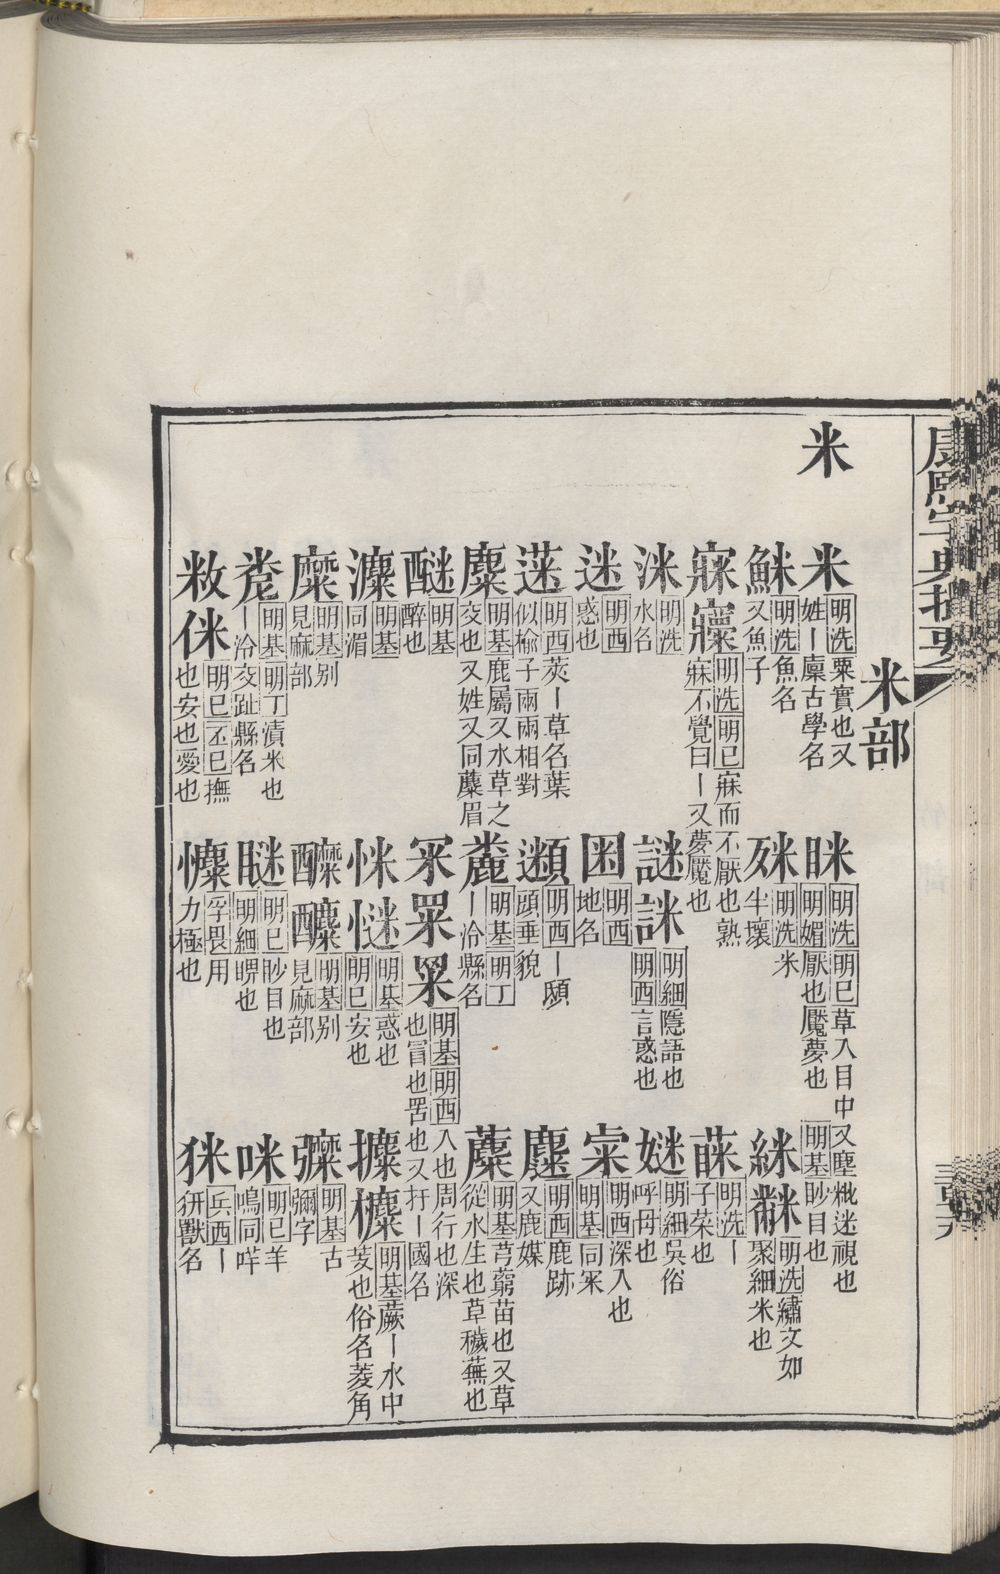 康熙字典撮要
米部
米
米 明洗粟實也又姓丨廩古學名 眯 明洗明巳草入目中又塵粃迷視也明媚厭也魘夢也明基眇目也
䱊 明洗魚名又魚子 明洗米半壞 䋛 明洗繡文如聚細米也
明洗明巳寐而不厭也熟寐不覺曰丨又夢魘也 明洗丨子菜也
洣 明洗水名 謎詸 明細隱語也明西言惑也 明細吳俗呼母也
迷 明西惑也 明西地名 明西深入也明基同冞
蒾 明西莢丨草名葉似楡子兩兩相對 明西丨頤頭垂貌 明西鹿跡又鹿媒
麋 明基鹿屬又水草之交也又姓又同蘪眉 麊 明基明丁丨泠縣名 蘪 明基芎藭苗也又草從水生也草穢蕪也
醚 明基醉也 冞罙 明基明西入也周行也深也冒也罟也又扜丨國名
明基同湄 明基惑也明巳安也 明基蕨丨水中芰也俗名菱角
糜 明基别見麻部 醾 明基别見麻部 明基古彌字
明基明丁漬米也丨泠交趾縣名 瞇 明巳眇目也明細瞑也 咪 明巳羊鳴同哶
敉侎 明巳丕巳撫也安也愛也 孚畏用力極也 兵西丨獸名